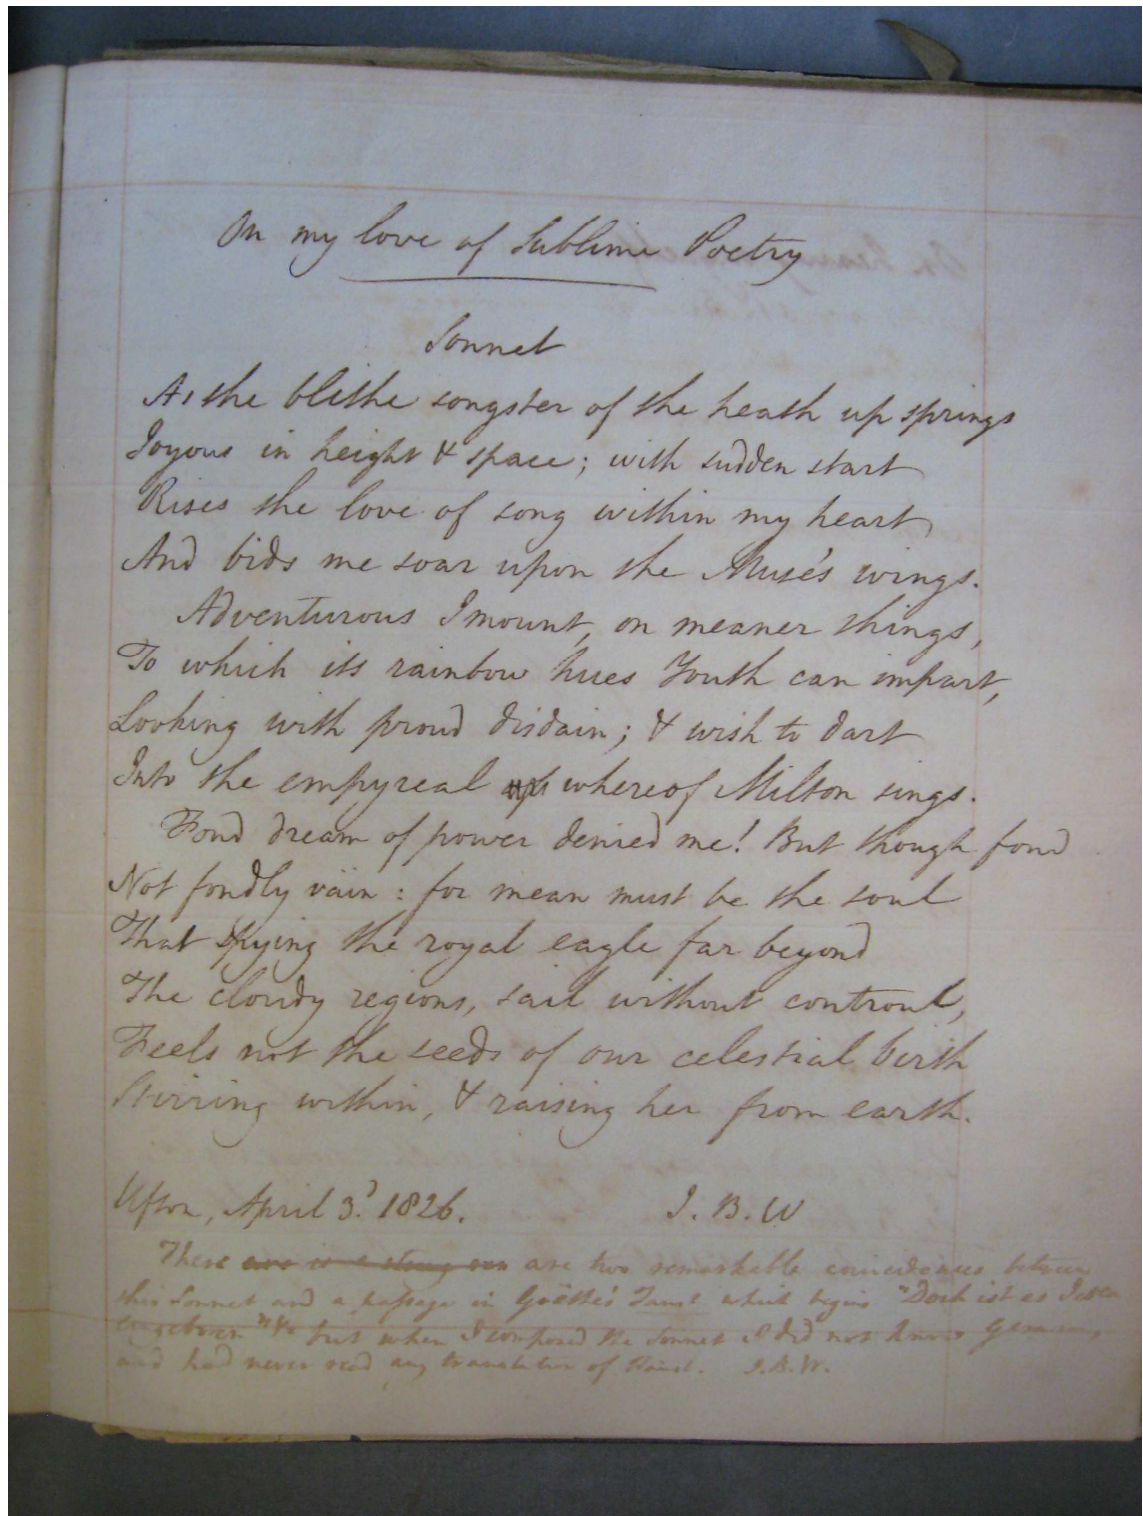 On my love of Sublime Poetry
Sonnet
As the blithe songster of the heath up springs
Joyous in height & space; with sudden start
Rises the love of song within my heart
And bids me soar upon the Muse's wings.
Adventurous I mount, on meaner things,
To which its rainbow hues Youth can impart,
Looking with proud disdain; & wish to dart
Into the empyreal whereof Milton sings.
Fond dream of power denied me! But though fond
Not fondly vain: for mean must be the soul
That spying the royal eagle far beyond
The cloudy regions, sail without controul,
Feels not the seeds of our celestial birth
Stirring within, & raising her from earth.
Ufton, April 3.d 1826. J. B. W
There are is a strong are two remarkable coincidences between
this Sonnet and a passage in Goëthe's Faust which begins "Doch ist es Jedem
eingeboren" &c but when I composed the Sonnet I did not know German,
and had never read any translation of Faust. J.B.W.